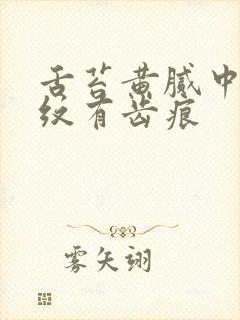 舌苔黄腻中
纹有齿痕
雾矢翊